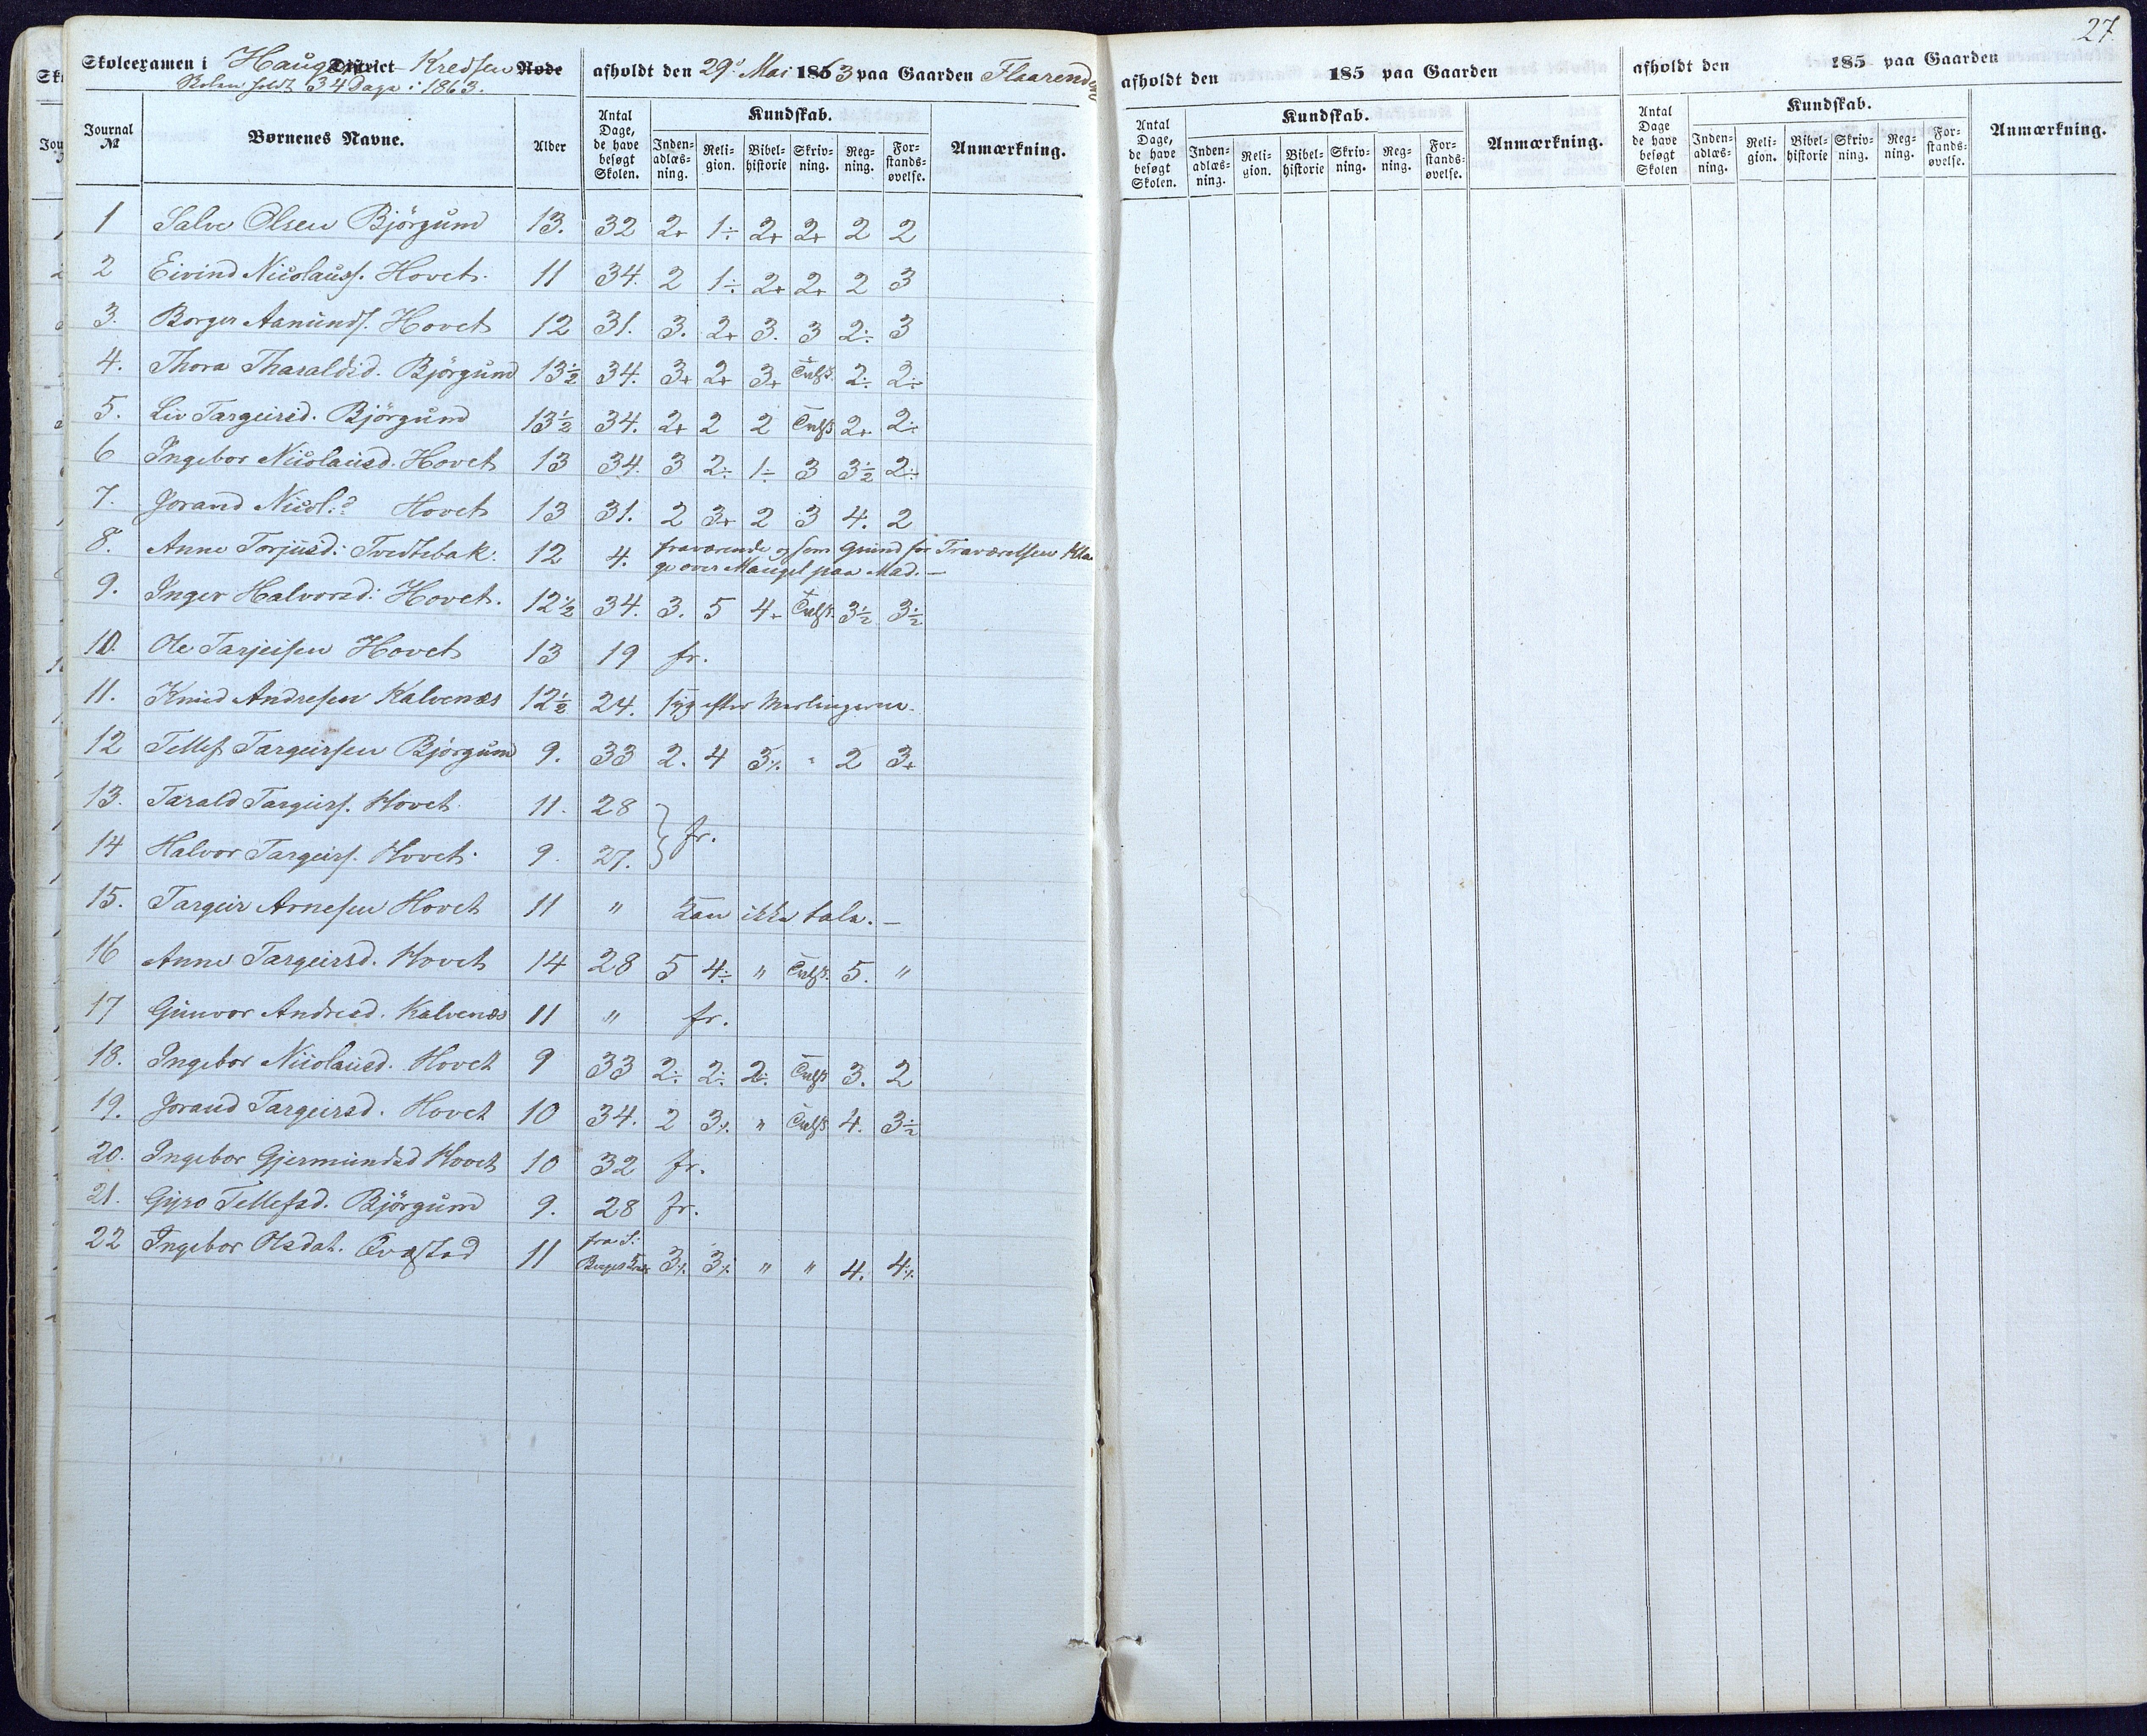 27.
Skoleexamen i Haug District Kredsen Rode afholdt den 29de Mai 1863 paa Gaarden Flaarend
Skolen holdt 34 Dage i 1863.
Journal № Børnenes Navne. Alder Antal Dage, de have besøgt Skolen. Kundskab. Indenadlæsning. Religion. Bibelhistorie Skrivning. Regning. Forstandsøvelse. Anmærkning.
1 Salve Olsen Björgum 13. 32 2+ 1÷ 2+ 2+ 2 2
2 Eivind Nicolauss. Hovet. 11 34. 2 1÷ 2+ 2+ 2 3
3. Borger Aanunds. Hovet 12 31. 3. 2+ 3. 3 2÷ 3
4. Thora Tharaldsd. Björgum 13½ 34. 3+ 2+ 3+ 2÷ 2÷
5. Liv Targeirsd. Björgum 13½ 34. 2+ 2 2 2+ 2÷
6 Ingebor Nicolausd. Hovet 13 34. 3 2÷ 1÷ 3 3½ 2÷
7. Jorand Nicol.? Hovet 13 31. 2 3+ 2 3 4. 2
8. Anne Torjusd: Tvedtebak. 12 4. fraværende og som Grund for Fraværelsen Kla-
ge over Mangel paa Mad. —
9. Inger Halvorsd: Hovet. 12½ 34. 3. 5 4+ 3½ 3½
10. Ole Tarjeisen Hovet 13 19 fr.
11. Knud Andresen Kalvenæs 12½ 24. syg efter Meslingerne.
12 Tellef Targeirsen Björgum 9. 33 2. 4 3٪ " 2 3+
13. Tarald Targeirs. Hovet 11. 28
fr.
14 Halvor Targeirs. Hovet. 9. 27.
15. Targeir Arnesen Hovet 11 " Kan ikke tale. —
16 Anne Targeirsd. Hovet 14 28 5 4÷ " 5. "
17 Gunvor Andresd. Kalvenæs 11 " fr.
18. Ingebor Nicolausd. Hovet 9 33 2÷ 2÷ 2÷ 3. 2
19. Jorand Targeirsd. Hovet 10 34. 2 3٪ " 4. 3½
20. Ingebor Gjermundsd Hovet 10 32 fr.
21. Gyro Tellefsd. Björgum 9. 28 fr.
22 Ingebor Olsdat. Qvastad 11 fra S: 3٪ 3٪ " " 4. 4٪
afholdt den 185 paa Gaarden
Antal Dage, de have besøgt Skolen. Kundskab. Indenadlæsning. Religion. Bibelhistorie Skrivning. Regning. Forstandsøvelse. Anmærkning.
afholdt den 185 paa Gaarden
Antal Dage de have besøgt Skolen Kundskab. Indenadlæsning. Religion. Bibelhistorie Skrivning. Regning. Forstandsøvelse. Anmærkning.